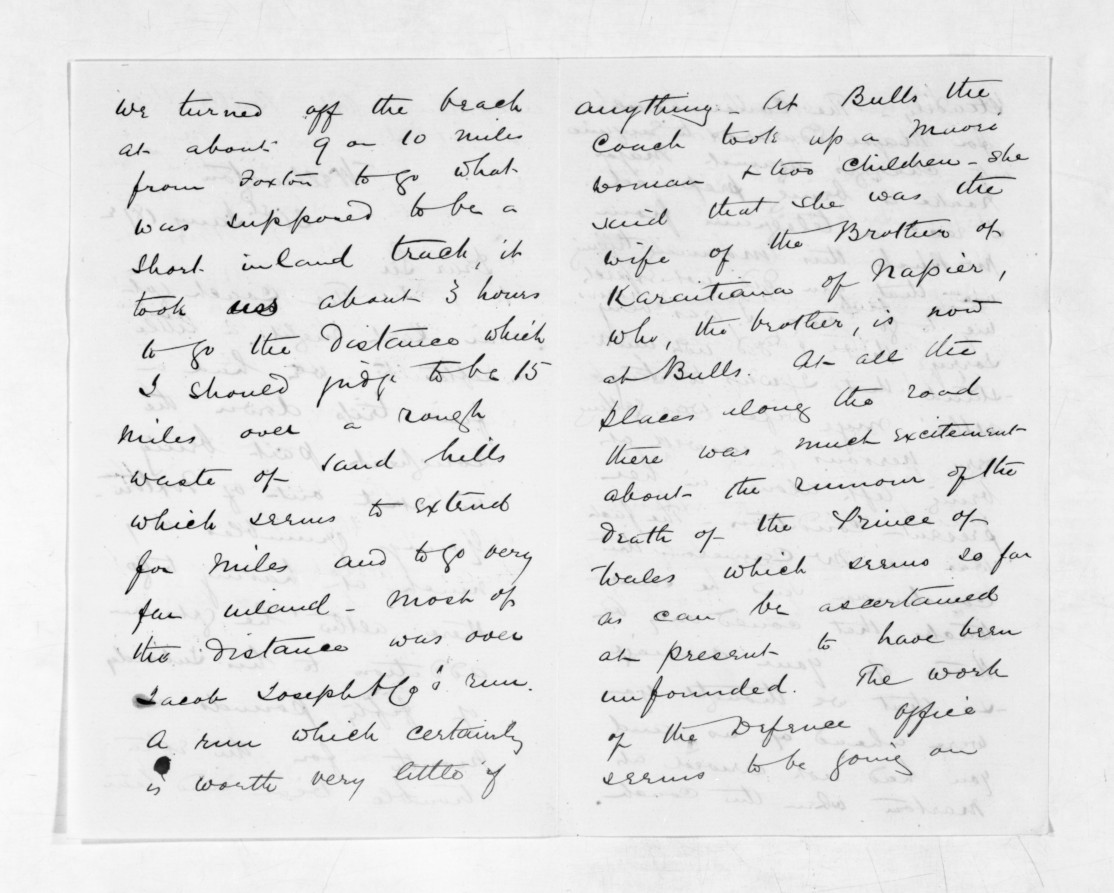 we turned off the beach
at about 9 or 10 miles
from Foxton to go what
was supposed to be a
short inland track, it
took us about 3 hours
to go the distance which
I should judge to be 15
miles over a rough
waste of sand hills
which seems to extend
for miles and to go very
far inland - most of
the distance was over
Jacob Joseph & Co's run.
A run which certainly
is worth very little if
anything - At Bulls the
Coach took up a Maori
woman & two children - She
said that she was the
wife of the Brother of
Karaitiana of Napier,
who, the brother, is now
at Bulls. At all the
places along the road
there was much excitement
about the rumour of the
death of the Prince of
Wales which seems so far
as can be ascertained
at present to have been
unfounded. The work
of the Defence Office
seems to be going on